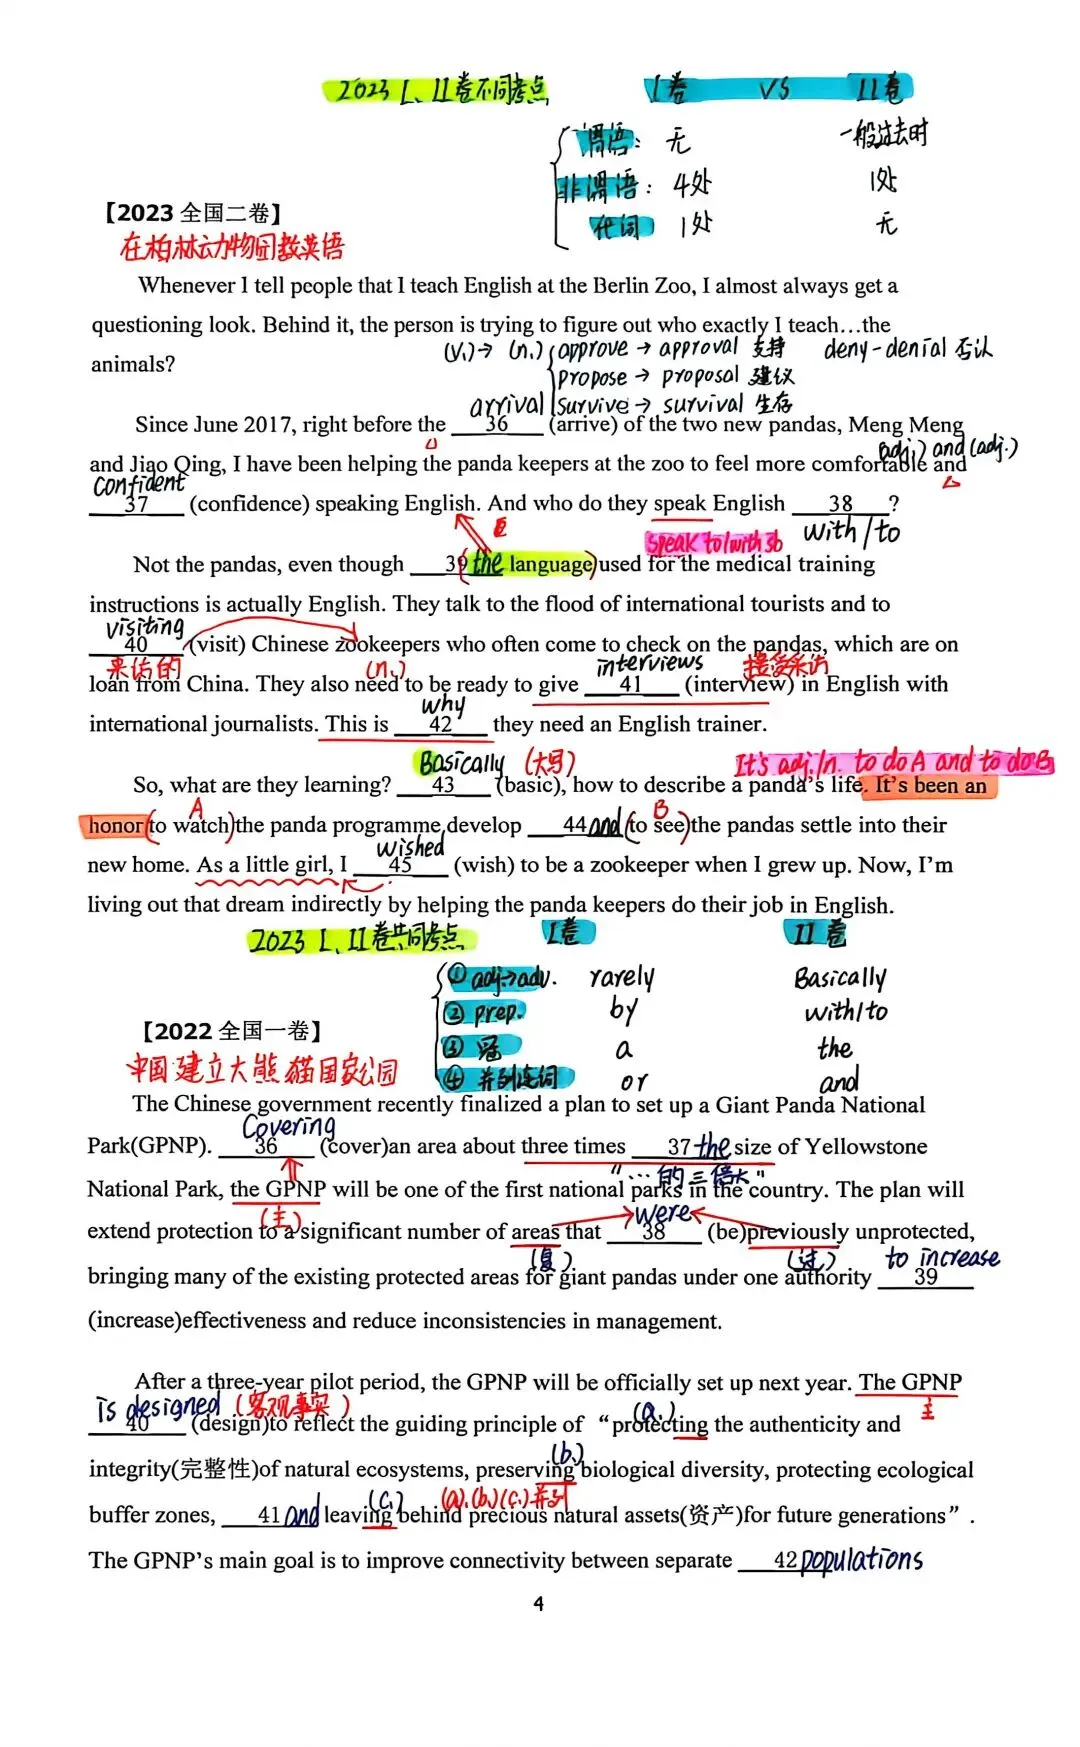 2023 I、II卷不同考点 I卷 VS II卷
谓语： 无 一般过去时
非谓语： 4处 1处
代词 1处 无
【2023 全国二卷】
在柏林动物园教英语
Whenever I tell people that I teach English at the Berlin Zoo, I almost always get a
questioning look. Behind it, the person is trying to figure out who exactly I teach…the
animals?
(v.)→ (n.) approve → approval 支持 deny-denial 否认
propose → proposal 建议
arrival survive → survival 生存
Since June 2017, right before the 36 (arrive) of the two new pandas, Meng Meng
adj.) and (adj.)
and Jiao Qing, I have been helping the panda keepers at the zoo to feel more comfortable and
confident
37 (confidence) speaking English. And who do they speak English 38 ?
speak to/with sb with/to
Not the pandas, even though 39 the language used for the medical training
instructions is actually English. They talk to the flood of international tourists and to
visiting
40 (visit) Chinese zookeepers who often come to check on the pandas, which are on
来访的 (n.) interviews 接受采访
loan from China. They also need to be ready to give 41 (interview) in English with
why
international journalists. This is 42 they need an English trainer.
Basically (大写) It's adj./n. to do A and to do B
So, what are they learning? 43 (basic), how to describe a panda's life. It's been an
A B
honor to watch the panda programme develop 44 and to see the pandas settle into their
wished
new home. As a little girl, I 45 (wish) to be a zookeeper when I grew up. Now, I'm
living out that dream indirectly by helping the panda keepers do their job in English.
2023 I、II卷共同考点 I卷 II卷
① adj.→adv. rarely Basically
② prep. by with/to
③ 冠 a the
④ 并列连词 or and
【2022 全国一卷】
中国建立大熊猫国家公园
The Chinese government recently finalized a plan to set up a Giant Panda National
Covering
Park(GPNP). 36 (cover)an area about three times 37 the size of Yellowstone
"…的三倍大"
National Park, the GPNP will be one of the first national parks in the country. The plan will
(主) were
extend protection to a significant number of areas that 38 (be)previously unprotected,
(复) (过) to increase
bringing many of the existing protected areas for giant pandas under one authority 39
(increase)effectiveness and reduce inconsistencies in management.
After a three-year pilot period, the GPNP will be officially set up next year. The GPNP
is designed (客观事实) (a.) 主
40 (design)to reflect the guiding principle of “protecting the authenticity and
(b.)
integrity(完整性)of natural ecosystems, preserving biological diversity, protecting ecological
(c.) (a).(b.)(c.)并列
buffer zones, 41 and leaving behind precious natural assets(资产)for future generations”.
The GPNP's main goal is to improve connectivity between separate 42 populations
4